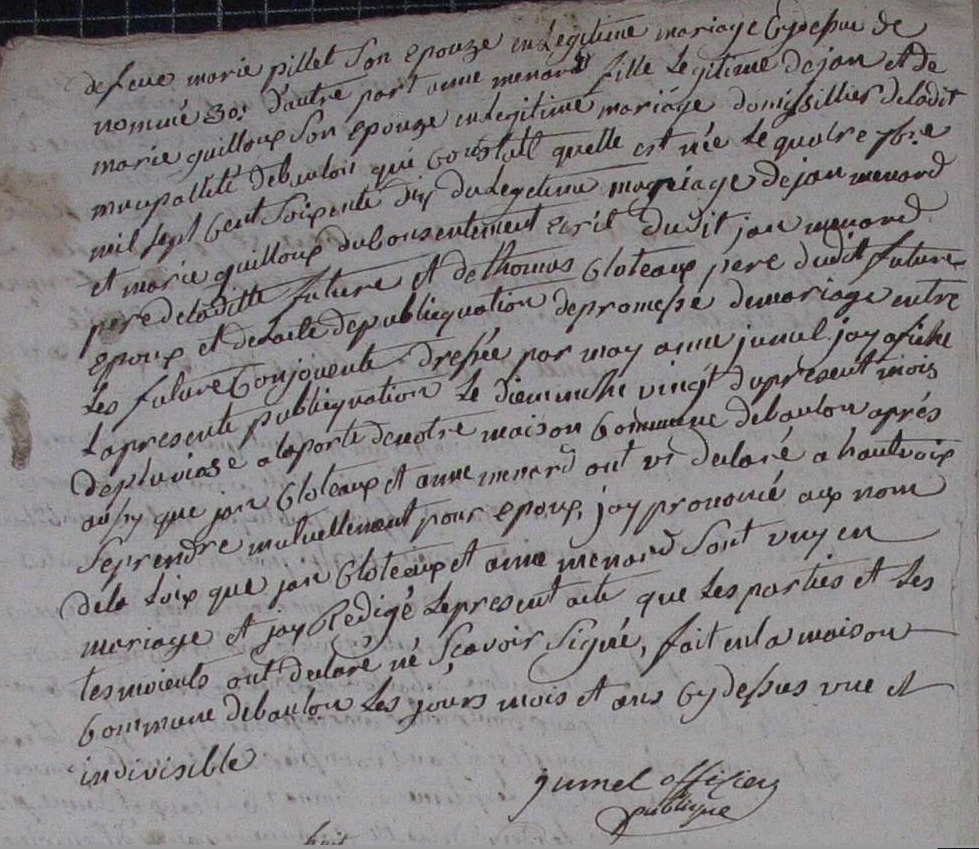 de feue marie pillet son epouze en Legitime mariage Cy desus de
nommé 30. d'autre part anne menard fille Legitime de jan et de
marie guilloux son epouze en Legitime mariage domissillier de ladit
munpallité de baulon qui Constate quelle est née Le quatre 7bre
mil sept Cent soixente dix du Legetime magriage de jan menard
et marie guilloux du Consentement ecrit dudit jan menard
pere de laditte future et de thomas Cloteaux pere dudit future
epoux et de lacte de publiquation de promesse de mariage entre
Les future Conjouents dressée par moy anne jumel jay afiché
La presente publiquation Le dieminche vingt du present mois
de pluviose a la porte de notre maison Commune de baulon aprés
ausy que jan Cloteaux et anne menard ont declaré a hautvoix
se prendre mutuellement pour epoux, jay pronomcé aux nom
de la Loix que jan Cloteaux et anne menard sont uny en
mariage et jay Redigé Le present acte que Les parties et Les
tesmoients ont declaré né sçavoir signée, fait en la maison
Commune de baulon Les jours mois et ans Cy dessus une et
indivisible
jumel offisier
publique